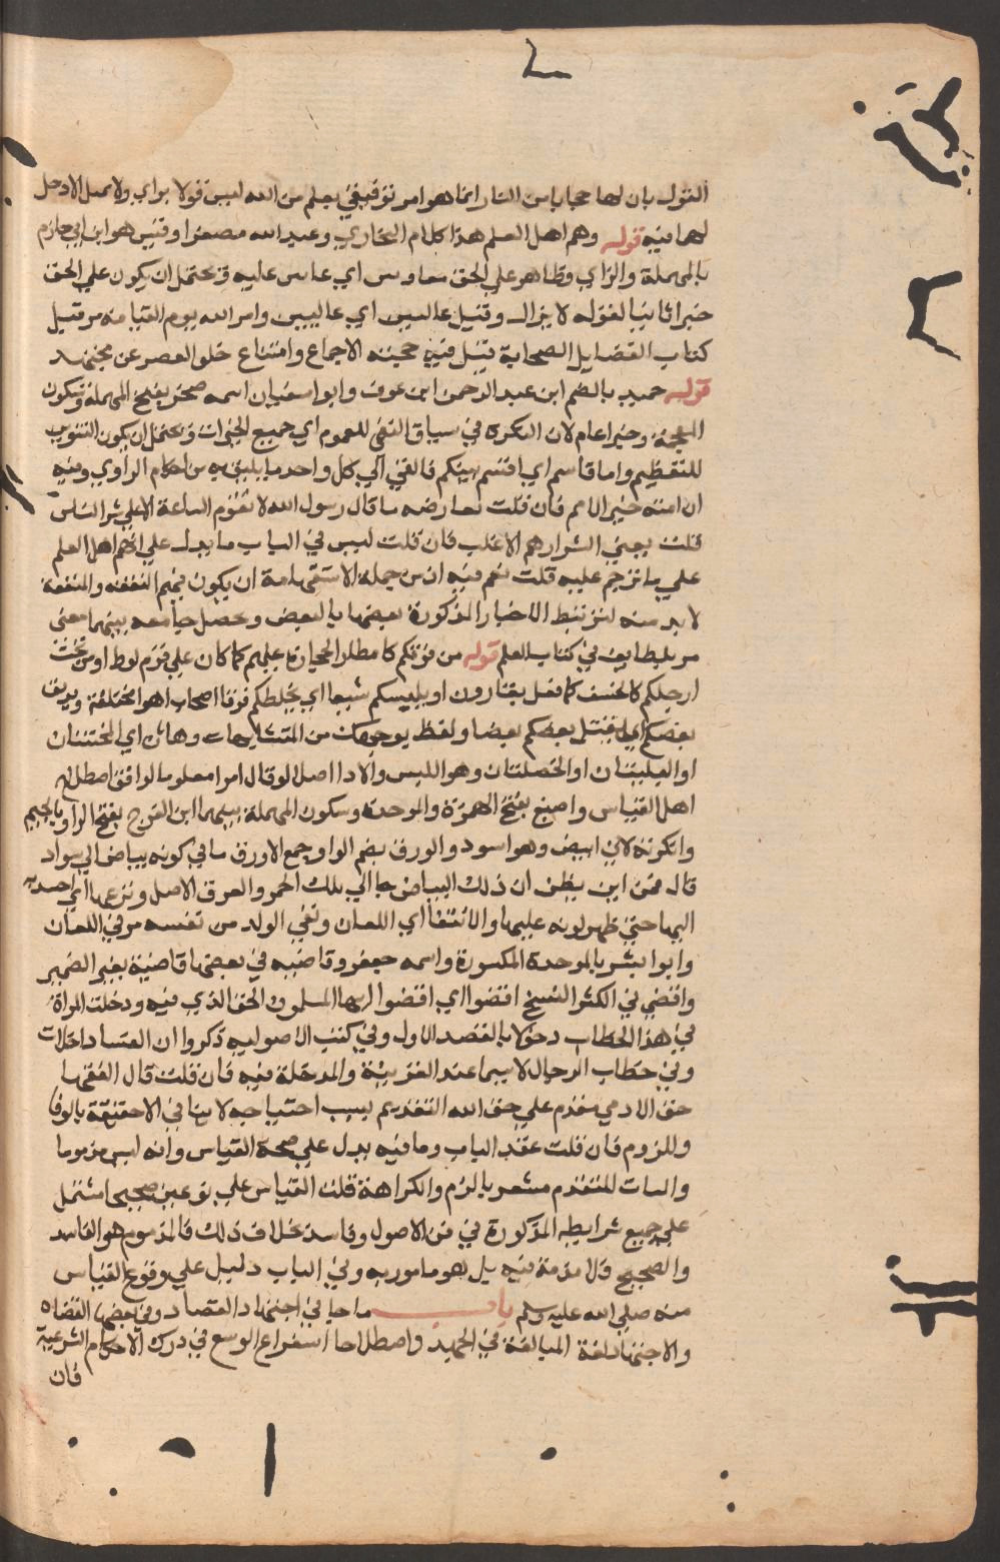 القول بان لها حجابا من النار انما هو امر توقيفي يعلم من الله ليس قولا براي ولا تمثيل لا دخل
لهما فيه قوله وهم اهل العلم هذا كلام البخاري وعبيد الله مصغرا وقيس هو ابن ابي حازم
بالمهملة والزاي وظاهر علي الحق معاونين اي غالبين عليه ويحتمل ان يكون علي الحق
خبرا ثانيا لقوله لا يزال وقيل عالين اي غالبين وامر الله يوم القيامة مر قبيل
كتاب الفضايل الصحابة قيل فيه حجية الاجماع وامتناع خلو العصر عن مجتهد
قوله حميد بالضم ابن عبد الرحمن ابن عوف وابو اسفيان اسمه صخر بفتح المهملة وسكون
المعجمة وخيرا عام لان النكرة في سياق النفي للعموم اي جميع الخيرات ويحتمل ان يكون التنوين
للتعظيم وانما قاسم اي اقسم بينكم فالقي الي كل واحد ما يليق به من احكام الراوي وفيه
ان امته خير الامم فان قلت تعارضه ما قال رسول الله لا تقوم الساعة الا علي شر الناس
قلت يعني الشرار هم الاغلب فان قلت ليس في الباب ما يدل علي انهم اهل العلم
علي ما ترجم عليه قلت نعم فيه ان من جملة الاستقامة ان يكون فيهم التفقه والمتفقه
لا بد منه لترتبط الاخبار المذكورة بعضها بالبعض وتحصل جامعه بينهما معنى
مر بلطايف في كتاب العلم قوله من فوقكم كامطار الحجارة عليهم كما كان علي قوم لوط او من تحت
ارجلكم كالخسف كما فعل بقارون او يلبسكم شيعا اي يخلطكم فرقا اصحاب اهوا مختلفة ويذيق
بعضكم اي يقتل بعضكم بعضا ولفظ بوجهك من المتشابهات وهاتان اي المحنتان
او البليتان او الخصلتان وهو اللبس والاذا اصل لو قال امرا معلوما لوافق اصطلاح
اهل القياس واصبغ بفتح الهمزة والموحدة وسكون المهملة بينهما ابن الفرج بفتح الراو بالجيم
وانكرته لاني ابيض وهو اسود والورق بضم الواو جمع الاورق ما في كونه بياض الي سواد
قال فمن اين يظن ان ذلك البياض جا الي بلك الحمر والعرق الاصل ونزعها اي اجتذبه
اليها حتي ظهر لونه عليها والانتفا اي اللعان ونفي الولد من نفسه مر في اللعان
وابوا بشر بالموحدة المكسورة واسمه جعفر وقاضيه في بعضها قاضية بغير الضمير
واقضي في اكثر النسخ اقضوا اي اقضوا ايها المسلمون الحق الذي فيه ودخلت المراة
في هذا الخطاب دخولا بالقصد الاول وفي كتب الاصوليه ذكروا ان النسا داخلات
وفي خطاب الرجال لا سيما عند القرينة والمدخلة فيه فان قلت قال الفقها
حق الادمي مقدم علي حق الله التقديم بسبب احتياجه لا ينافي الاحقيقة بالوفا
واللزوم فان قلت عقد الباب وما فيه يدل علي صحة القياس وانه ليس مذموما
والباب المتقدم مشعر بالزم والكراهة قلت القياس علي نوعين صحيح اشتمل
علي جميع شرايطه المذكورة في فن الاصول وفاسد بخلاف ذلك فالمذموم هو الفاسد
والصحيح فلا مذمة فيه بل هو مامور به وفي الباب دليل علي وقوع القياس
منه صلي الله عليه وسلم باب ما جا في اجتهاد القضاه وفي بعضها القضاه
والاجتهاد لغة المبالغة في الجهد واصطلاحا استفراغ الوسع في درك الاحكام الشرعية
فان